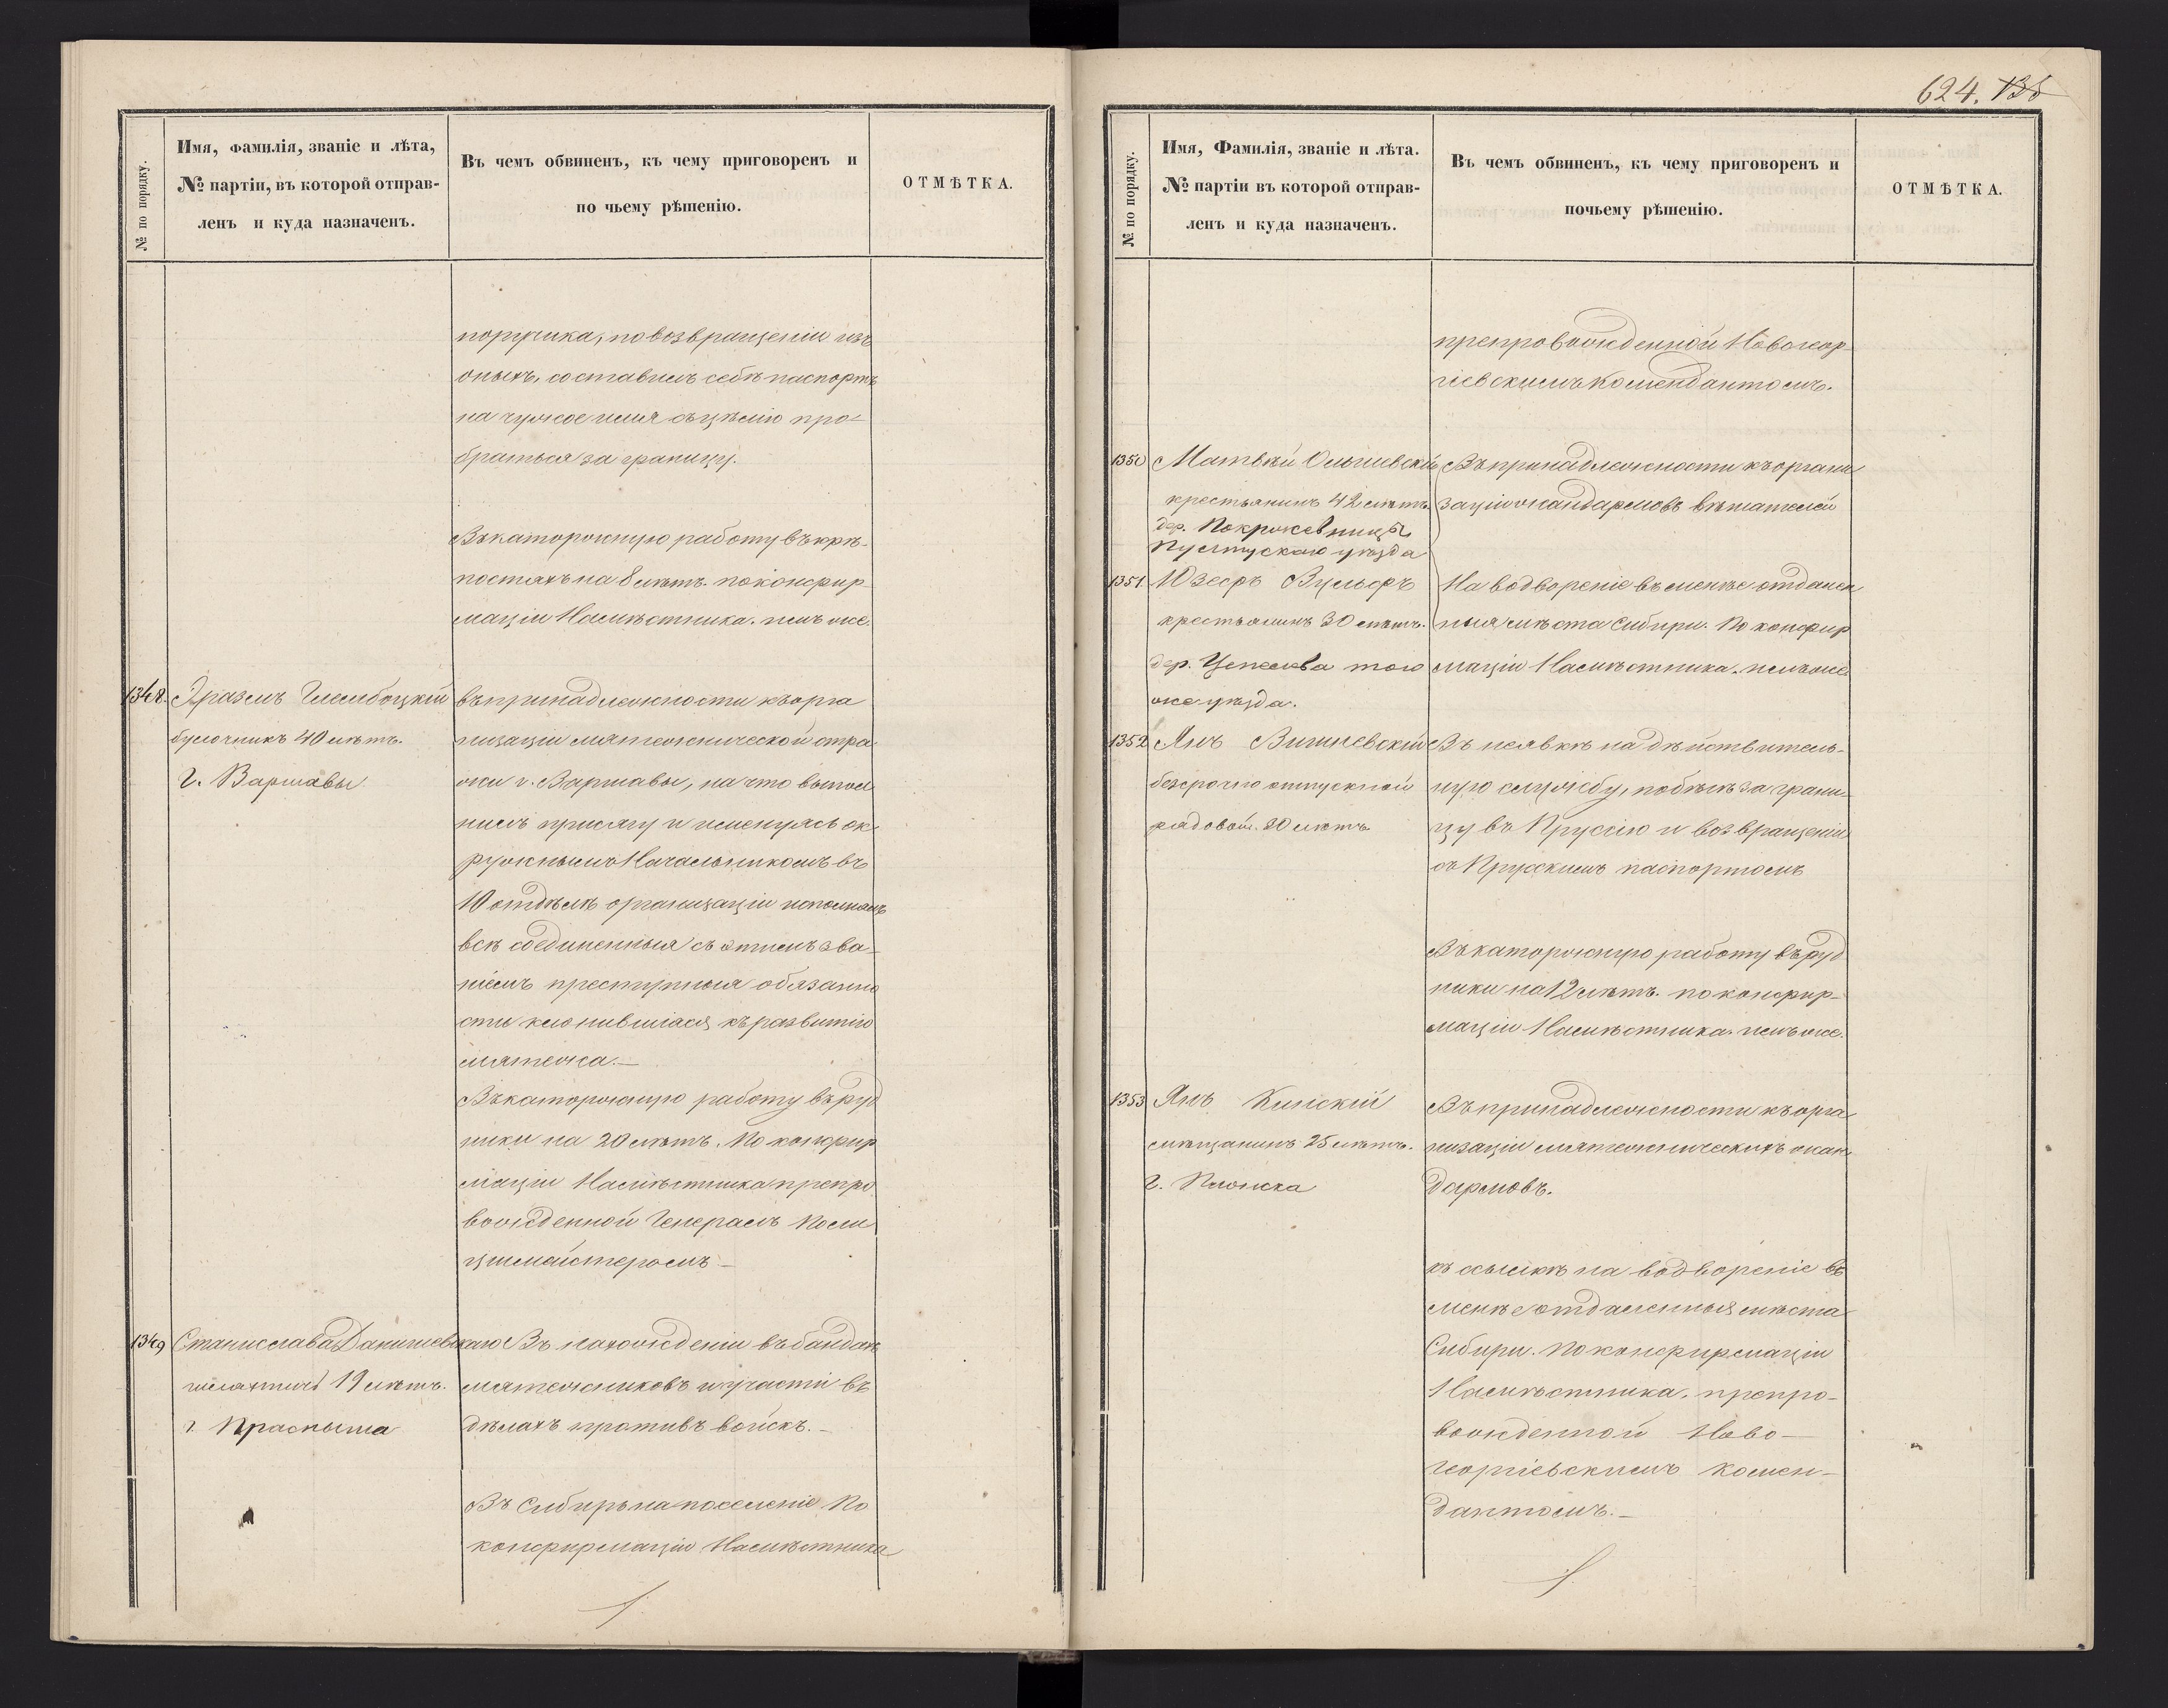 № по порядку.
Имя, фамилія, званіе и лѣта,
№ партіи, въ которой отправ-
ленъ и куда назначенъ.
Въ чемъ обвиненъ, къ чему приговоренъ и
по чьему рѣшенію.
ОТМѢТКА.
поручика, по возвращеніи изъ
оныхъ, составилъ себѣ паспортъ
на чужое имя съ цѣлію про-
браться за границу.
Въ каторожную работу въ крѣ-
постяхъ на 8 лѣтъ. по конфир
маціи Намѣстника. имъ же.
1348. Эразмъ Глембоцкій
булочникъ 40 лѣтъ.
г. Варшавы
въ принадлежности къ орга
низаціи мятежнической стра
жи г. Варшавы, на что выпол
нилъ присягу и именуясь ок
ружнымъ Начальникомъ въ
10 отдѣлѣ организаціи исполнялъ
всѣ соединенныя съ этимъ зва-
ніемъ преступныя обязанно
сти клонившіася къ развитію
мятежа.—
Въ каторожную работу въ руд
ники на 20 лѣтъ. По конфир
маціи Намѣстника препро
вожденной Генералъ Поли
цимейстеромъ—
1349 Станислава Данишевскаго
шляхтичъ 19 лѣтъ.
г. Прасныша
Въ нахожденіи въ бандахъ
мятежниковъ и участіи въ
дѣлахъ противъ войскъ.—
Въ Сибирь на поселеніе По
конфирмаціи Намѣстника
624. 135
№ по порядку.
Имя, Фамилія, званіе и лѣта.
№ партіи въ которой отправ-
ленъ и куда назначенъ.
Въ чемъ обвиненъ, къ чему приговоренъ и
почьему рѣшенію.
ОТМѢТКА.
препровожденной Новогеор-
гіевскимъ Комендантомъ.
1350 Матвѣй Ольшевскій
крестьянинъ 42 лѣтъ.
дер. Покржевницы
Пултускаго уѣзда
Въ принадлежности къ органи
заціи жандармовъ вѣшателей
1351. Юзефъ Вульфъ
крестьянинъ 30 лѣтъ.
дер. Цепелева того
же уѣзда.
На водвореніе въ менѣе отдален
ныя мѣста Сибири. По конфир
маціи Намѣстника. имъ же
1352 Янъ Вишневскій
безсрочно отпускной
рядовой. 30 лѣтъ
Въ неявкѣ на дѣйствитель-
ную службу, побѣгѣ за грани-
цу въ Пруссію и возвращеніи
съ Прусскимъ паспортомъ
Въ каторожную работу въ руд
ники на 12 лѣтъ. по конфир-
маціи Намѣстника. имъ же.
1353 Янъ Кинскій
мѣщанинъ 25 лѣтъ.
г. Плонска
Въ принадлежности къ орга
низаціи мятежническихъ жан
дармовъ.
къ ссылкѣ на водвореніе въ
менѣе отдаленныя мѣста
Сибири. По конфирмаціи
Намѣстника. препро-
вожденной Ново-
георгіевскимъ комен-
дантомъ.—